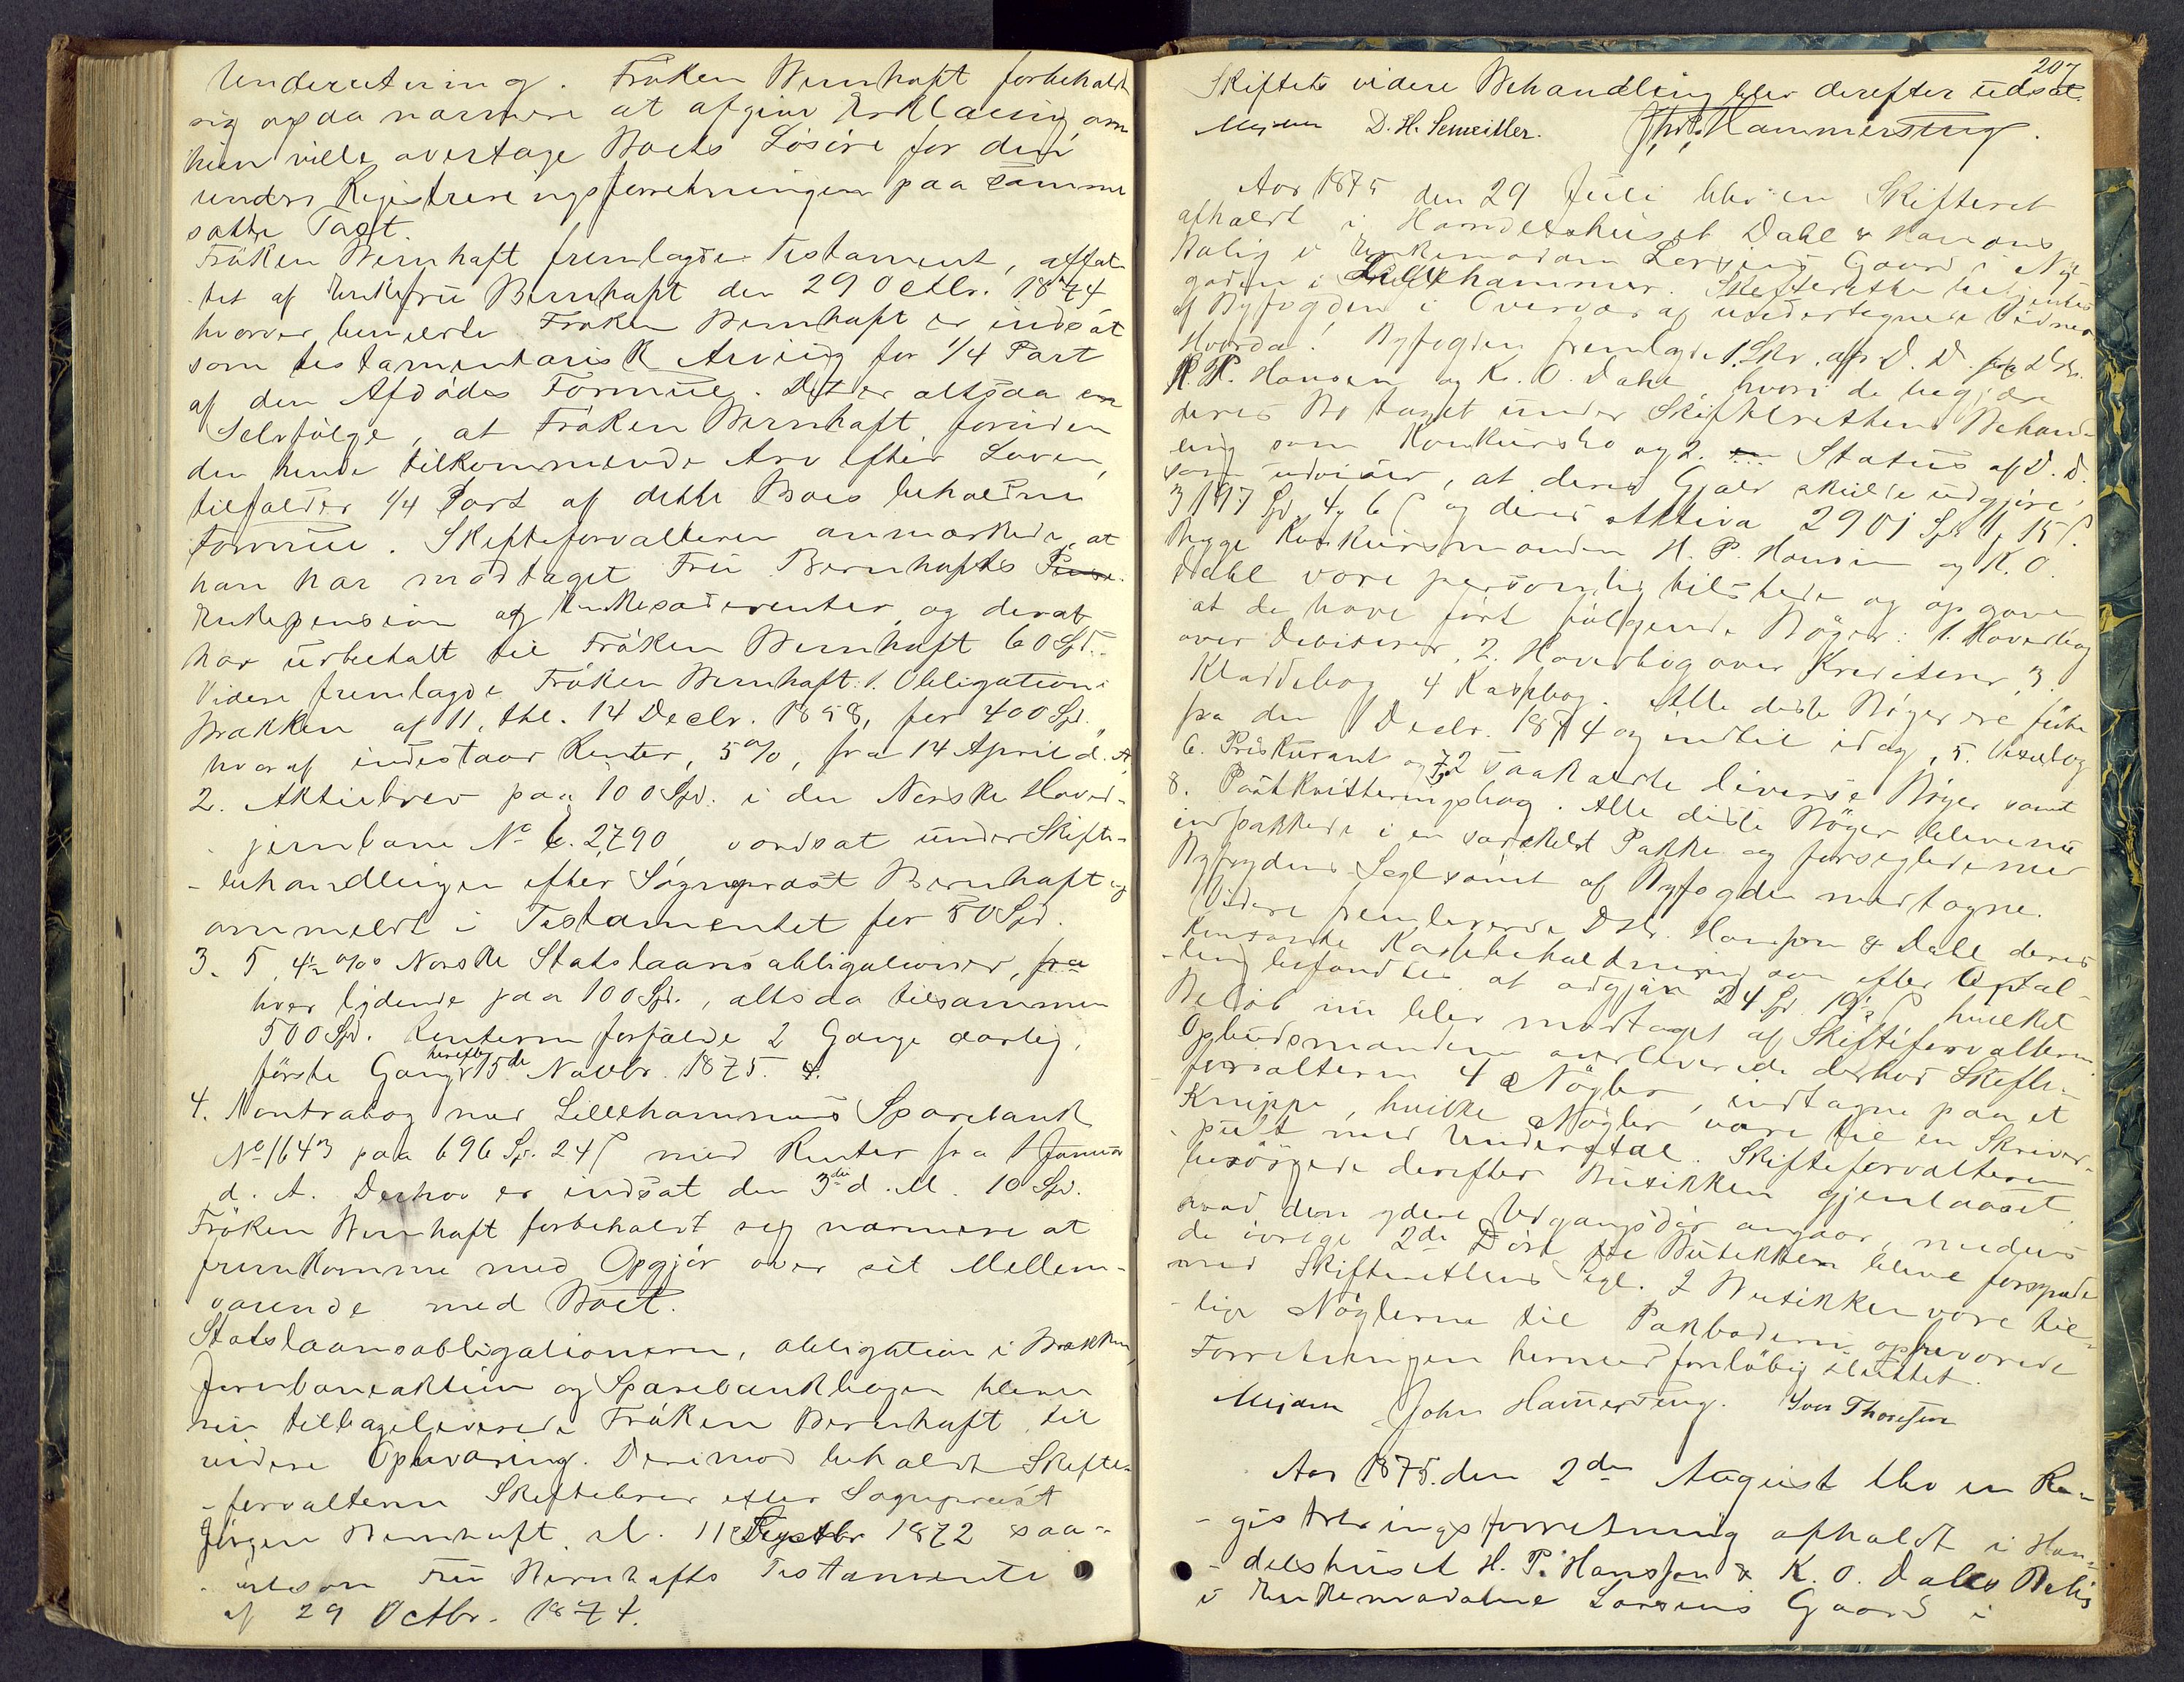 Underretning. Fröken Bernhoft forbeholdt
sig ogsaa nærmere at afgive Erklæring, om
hun vilde overtage Boets Løsöre for den
under Registreringsforretningen paa samme
satte Taxt.
Fröken Bernhoft fremlagde Testament, affat-
tet af Enkefru Bernhoft den 29 Octbr. 1874
hvorved bemeldte Fröken Bernhoft er indsat
som testamentarisk Arving for 1/4 Part
af den Afdödes Formue. Det er altsaa en
Selvfölge, at Fröken Bernhoft, foruden
den hende tilkommende Arv efter Loven,
tilfalder 1/4 Part af dette Boes beholdne
Formue. Skifteforvalteren anmærkede, at
han har modtaget Fru Bernhofts
Enkepension og Enkesæderenter, og deraf
har udbetalt til Fröken Bernhoft 60 Spd.
Videre fremlagde Fröken Bernhoft: 1. Obligation i
Brækken af 11, thl. 14 Decbr. 1858, for 400 Spd.
hvoraf indestaar Renter, 5%, fra 14 April d. A.
2. Aktiebrev paa 100 Spd. i den Norske Hoved-
jernbane No 2,790 værdsat under Skifte-
-behandlingen efter Sogneprost Bernhoft og
ommeldt i Testamentet for 50 Spd.
3. 5, 4½ % Norske Statslaansobligationer, fra
hver lydende paa 100 Spd., altsaa tilsammen
500 Spd. Renterne forfalde 2 Gange aarlig,
förste Gang herefter 15de Novbr. 1875. 4.
4. Kontrabog med Lillehammers Sparebank
No 1643 paa 696 Sp. 24 ß med Renter fra 1 Januar
d. A. Derhos er indsat den 3die d. M. 10 Spd.
Fröken Bernhoft forbeholdt sig nærmere at
fremkomme med Opgjör over sit Mellem-
værende med Boet.
Statslaansobligationerne, obligation i Brækken,
Jernbaneaktien og Sparebankbogen bleve
nu tilbageleverede Fröken Bernhoft til
videre Opbevaring. Derimod beholdt Skifte-
-forvalteren Skiftebrev efter Sogneprost
Jörgen Bernhoft, dl. 11 Septbr 1872 saa-
-velsom Fru Bernhofts Testamente
af 29 Octbr. 1874.
207
Skiftets videre Behandling blev derefter udsat.
Mejdell D. H. Semeiller. Hammerseng.
Aar 1875 den 29 Juli blev en Skifteret
afholdt i Handelshuset Dahl & Hansens
Bolig i Enkemadam Larsens Gaard i Ny-
gaden i Lillehammer. Skifteretten betjentes
af Byfogden i Overvær af undertegnede Vidner
Hvorda: Byfogden fremlagde 1. Skr. af D. D. fra DHr.
H. P. Hansen og K. O. Dahl, hvori de begjære
deres Bo taget under Skifterettens Behand-
ling som Konkursbo og 2. Status af D. D.
som udviser, at deres Gjæld skulde udgjöre
3197 Spd 4 6 ß og deres Aktiva 2901 Spd 1 15 ß.
Begge Konkursmænden H. P. Hansen og K. O.
Dahl vare personlig tilstede og opgave
at de have fört fölgende Böger: 1. Hovedbog
over Debitorer, 2. Hovedbog over Kreditorer, 3.
Kladdebog, 4 Kassebog. Alle disse Böger ere förte
fra den 1 Decbr. 1874 og indtil idag, 5. Vexelbog
6. Priskurant og 7. 2 saakaldte diverse Böger samt
8. Postkvitteringsbog. Alle disse Böger bleve nu
indpakkede i en særskilt Pakke og forseglede med
Byfogdens Segl samt af Byfogden modtagne.
Videre fremleverede DHr. Hansen & Dahl deres
kontante Kassebeholdning som efter Optæl-
-ling befandtes at udgjöre 24 Spd 19½ ß hvilket
Belöb nu blev modtaget af Skifteforvalteren.
Opbudsmændene overleverede derhos Skifte-
forvalteren 4 Nögler, indtagne paa et
Knippe, hvilke Nögler vare til en Skriver-
pult med Understal. Skifteforvalteren
besörgede derefter Butikken gjenlaaset
hvad den ydre Udgangsdör angaar, medens
de övrige 2de Döre til Butikken bleve forsynede
med Skifterettens Segl. I Butikken vare til-
-lige Nöglerne til Pakboderne opbevarede
Forretningen hermed forelöbig sluttet.
Mejdell John Hamerseng. Iver Thoresen
Aar 1875 den 2den August blev en Re-
-gistreringsforretning afholdt i Han-
-delshuset H. P. Hansen & K. O. Dahls Bolig
i Enkemadame Larsens Gaard i